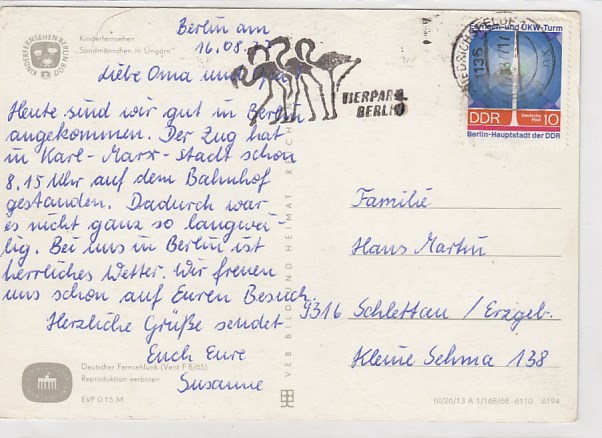 Kinderfernsehen
„Sandmännchen in Ungarn"
KINDERFERNSEHEN BERLIN DDR
Berlin am
16.08.
Liebe Oma und Opa!
Heute sind wir gut in Berlin
angekommen. Der Zug hat
in Karl-Marx-Stadt schon
8.15 Uhr auf dem Bahnhof
gestanden. Dadurch war
es nicht ganz so langwei-
lig. Bei uns in Berlin ist
herrliches Wetter. Wir freuen
uns schon auf Euren Besuch.
Herzliche Grüße sendet
Euch Eure
Susanne
Deutscher Fernsehfunk (Vent F 8/65)
Reproduktion verboten
EVP 0.15 M
VEB BILD UND HEIMAT REICH
TIERPARK
BERLIN
1136
und UKW-Turm
DDR
Deutsche Post
10
Berlin-Hauptstadt der DDR
Familie
Hans Martin
9316 Schlettau / Erzgeb.
Kleine Sehma 138
III/26/13 A 1/168/68-6110 6194